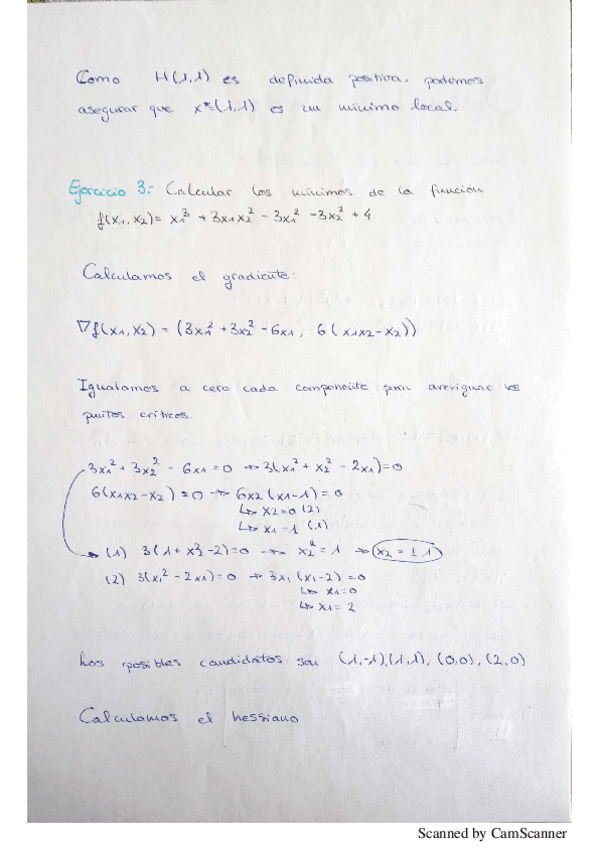 Como H(1,1) es definida positiva, podemos
asegurar que x*=(1,1) es un mínimo local.
Ejercicio 3: Calcular los mínimos de la función
f(x₁,x₂)= x₁³ + 3x₁x₂² - 3x₁² - 3x₂² + 4
Calculamos el gradiente:
∇f(x₁,x₂) = (3x₁² + 3x₂² - 6x₁, 6(x₁x₂-x₂))
Igualamos a cero cada componente para averiguar los
puntos críticos.
3x₁² + 3x₂² - 6x₁ = 0 → 3(x₁² + x₂² - 2x₁)=0
6(x₁x₂-x₂)=0 → 6x₂(x₁-1)=0
↳ x₂=0 (2)
↳ x₁=1 (1)
(1) 3(1+x₂²-2)=0 → x₂²=1 → x₂=±1
(2) 3(x₁²-2x₁)=0 → 3x₁(x₁-2)=0
↳ x₁=0
↳ x₁=2
Los posibles candidatos son (1,-1),(1,1),(0,0),(2,0)
Calculamos el hessiano
Scanned by CamScanner